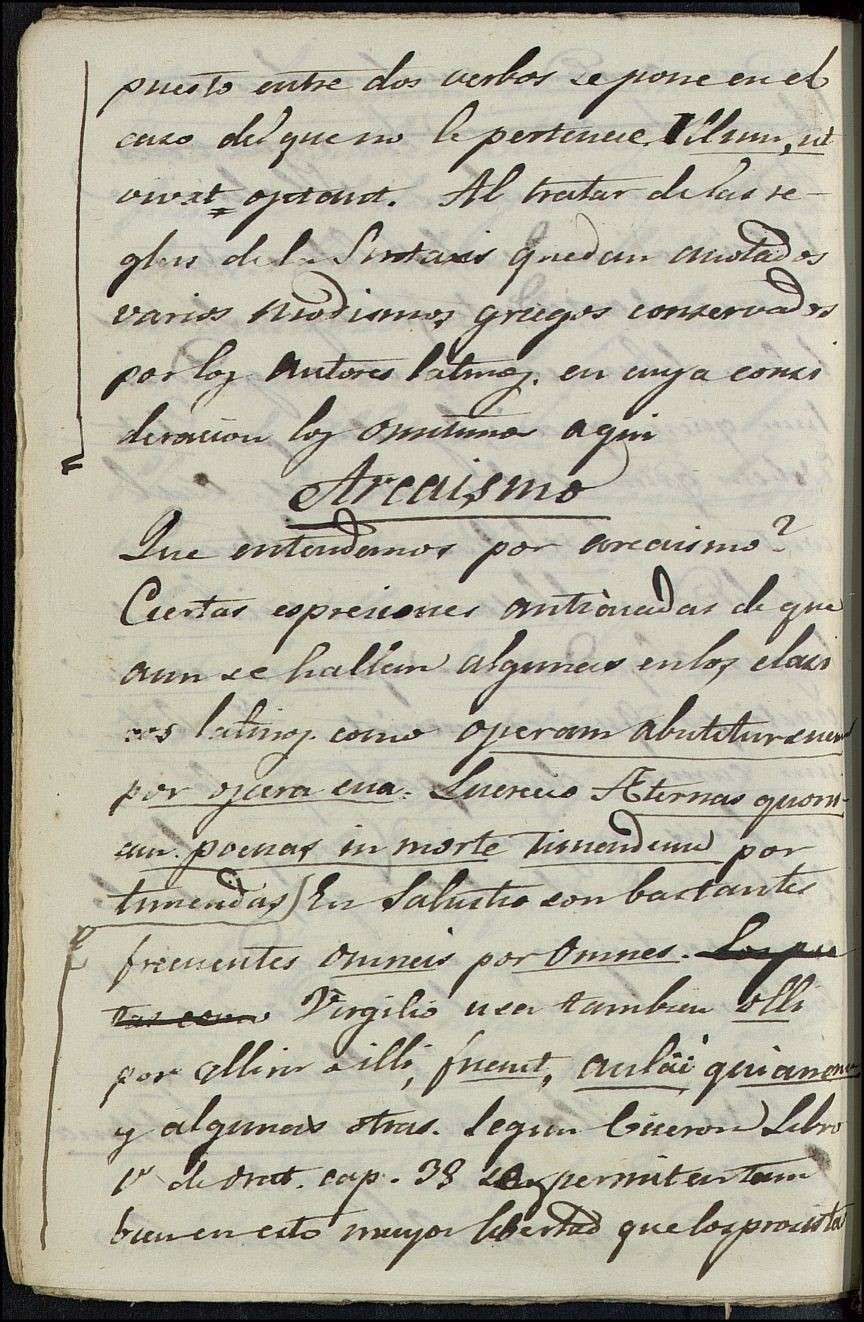 puesto entre dos verbos se pone en el
caso del que no le pertenece. Illum, ut
vivat optant. Al tratar de las re-
glas de la Sintaxis quedan anotados
varios modismos griegos conservados
por los autores latinos. en cuya consi
deracion los omitimos aqui
Arcaismo
Que entendemos por arcaismo?
Ciertas espresiones anticuadas de que
aun se hallan algunas en los clasi
cos latinos. como operam abutitur suam
por opera sua. Lucrecio Æternas quoni-
am poenas in morte timendum por
timendas) En Salustio son bastantes
frecuentes omneis por omnes. Los poe
tas como Virgilio usa tambien olli
por illi, fuat, aulâï quianam
y algunas otras. Segun Ciceron Libro
1º de orat. cap. 38 se permiten tam
bien en esto mayor libertad que los prosistas